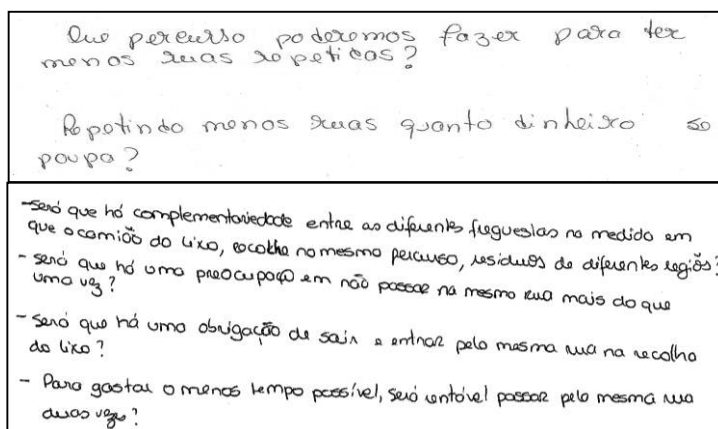 Que percurso poderemos fazer para ter
menos ruas repetidas?
Repetindo menos ruas quanto dinheiro se
poupa?
- Será que há complementariedade entre as diferentes freguesias na medida em
que o camião do lixo, recolhe no mesmo percurso, resíduos de diferentes regiões?
- Será que há uma preocupação em não passar na mesma rua mais do que
uma vez?
- Será que há uma obrigação de sair e entrar pela mesma rua na recolha
do lixo?
- Para gastar o menos tempo possível, será rentável passar pela mesma rua
duas vezes?